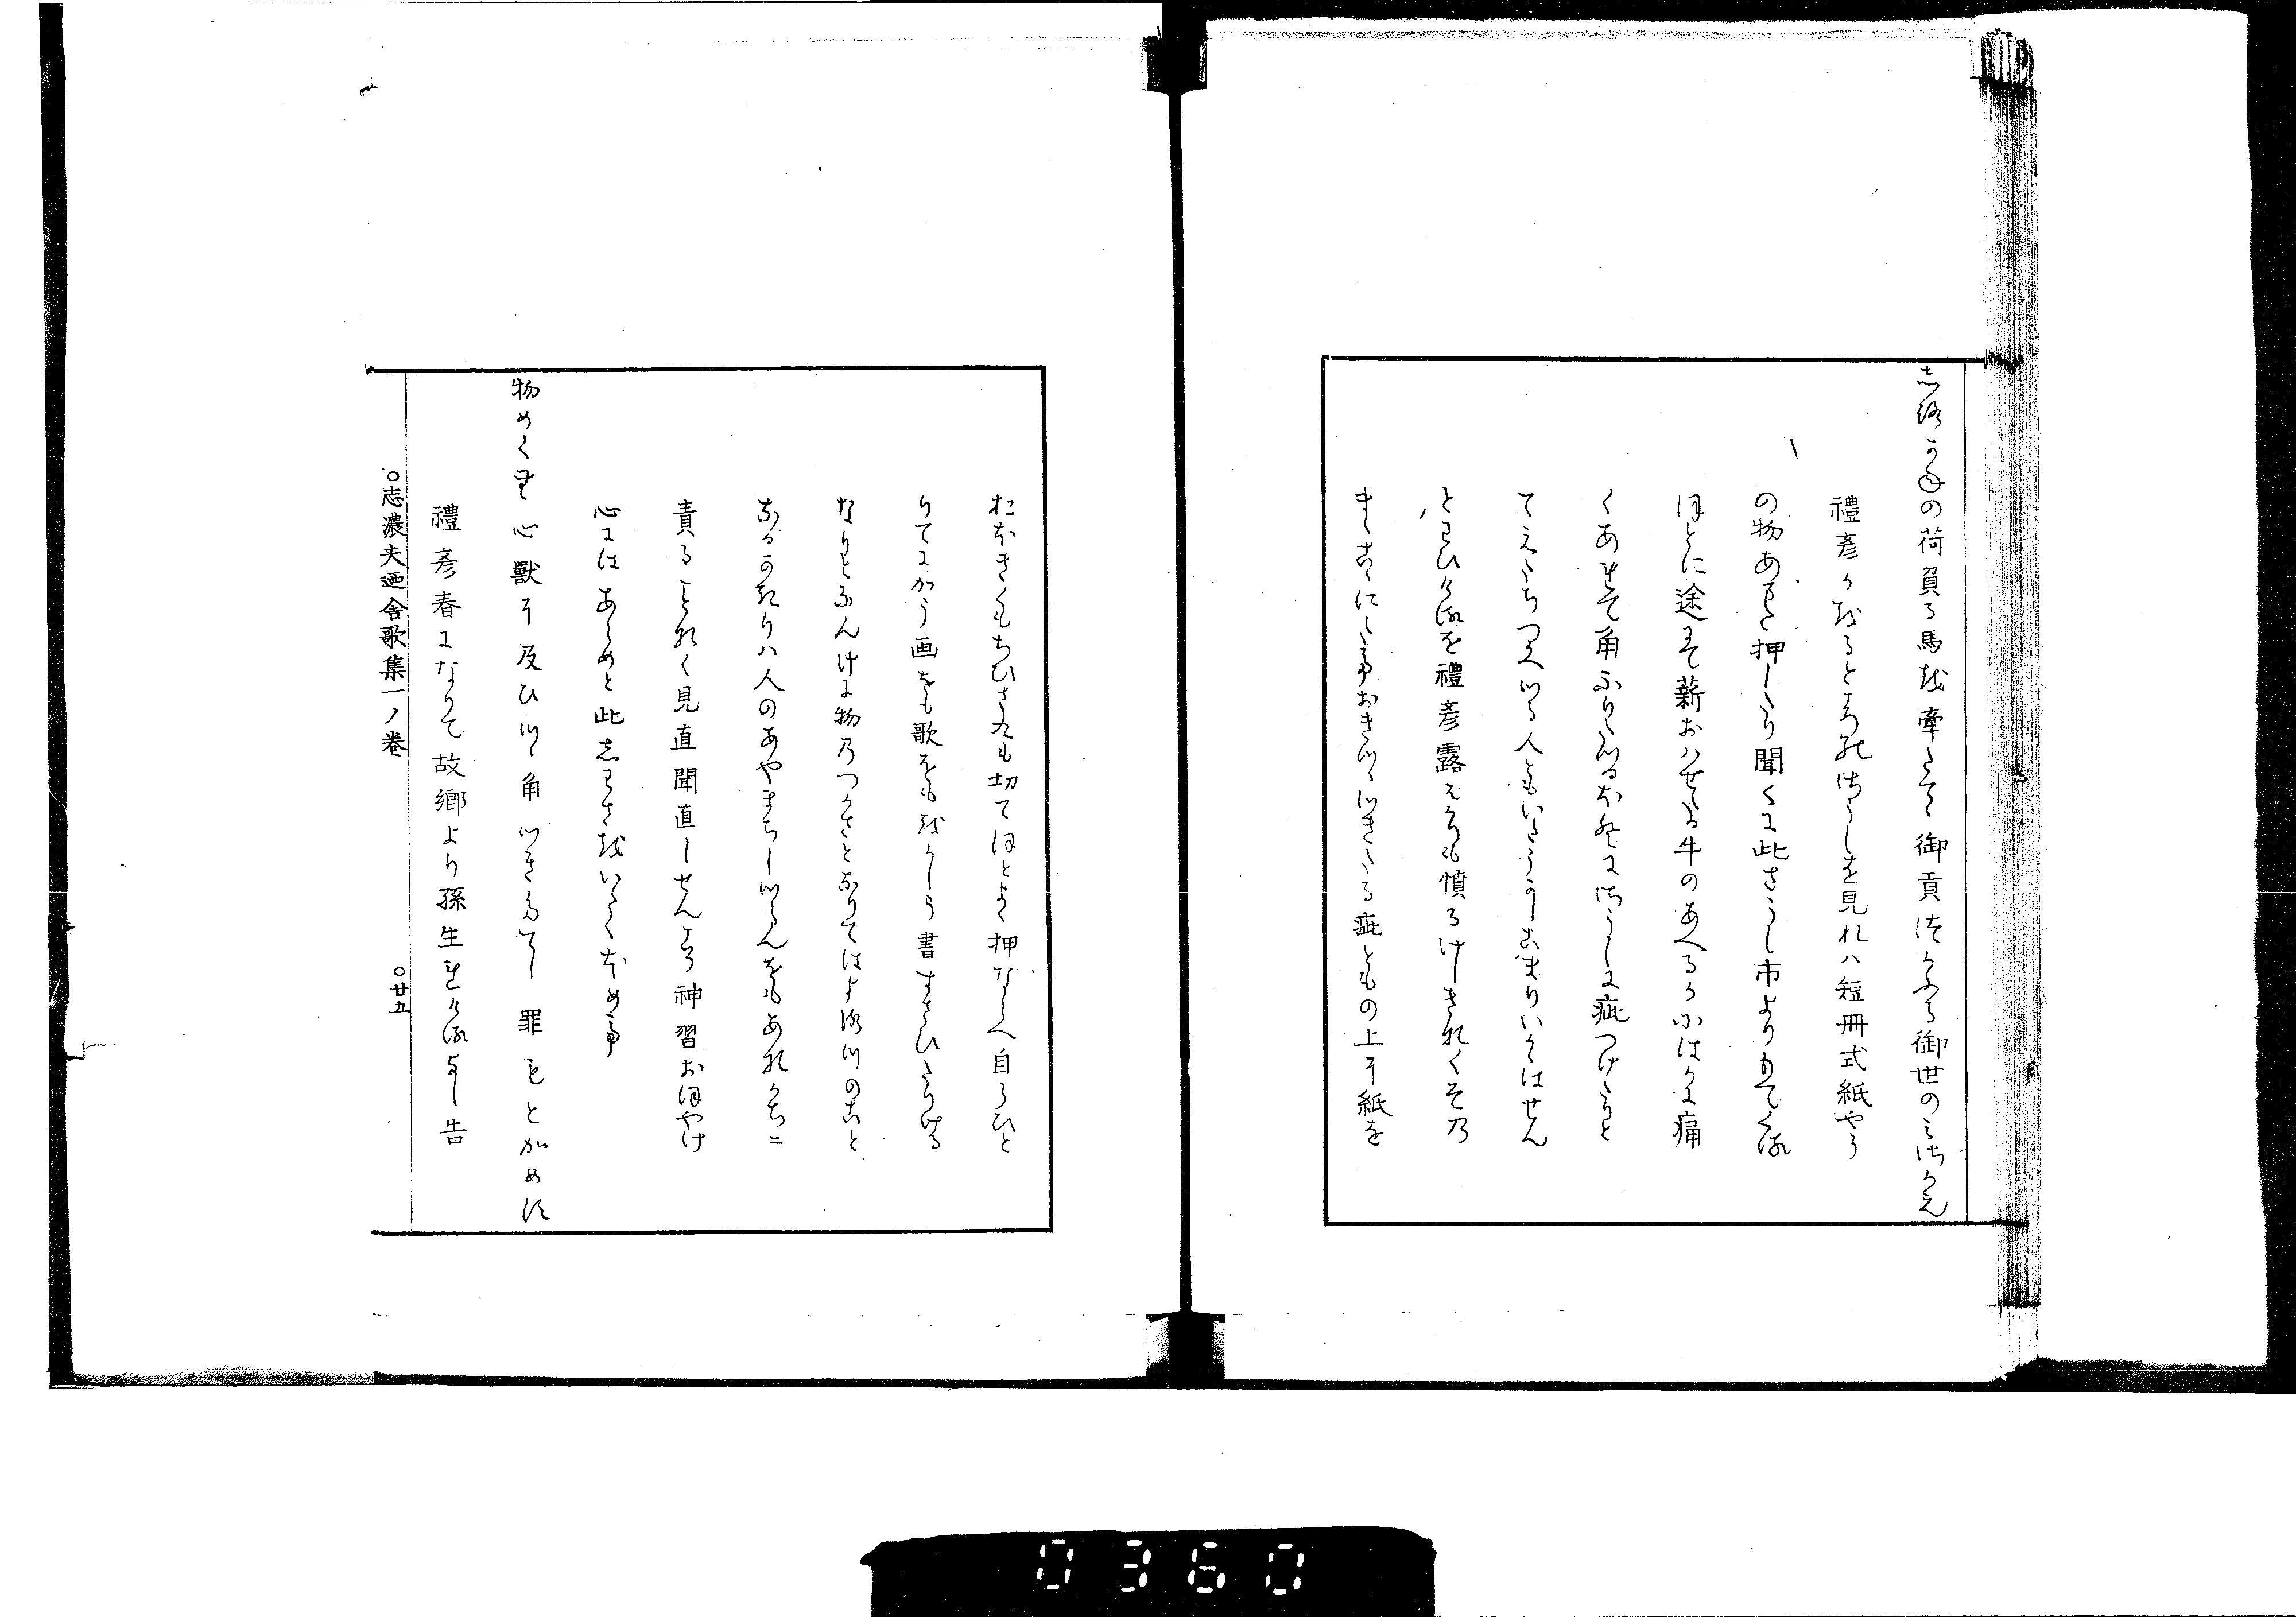 志路かねの荷負る馬を牽たてゝ御貢つかふる御世のみさかえ
禮彦かをるところのさうしを見れハ短冊式紙やう
の物あまた押したり聞くに此さうし市よりもてくる
ほとに途にて薪おハせたる牛のあへるかにはかに痛
くあれて角ふりたつるほとにさうしに疵つけたりと
てえうちつかへつる人ともいたううしこまりいかはせん
とわひけるを禮彦露はかりも憤るけしきなくその
まゝ
疵ともの上に紙を
おほきくもちひさくも切てほとよく押なへ自らひと
りてにかう画をも歌をもをかしう書すさひたりける
なりとなんけに物のつかさとなりてはよろつのこと
なるかきりハ人のあやまちしつらんをもあなかちに
責ることなく見直聞直しせんこそ神習おほやけ
心にはあらめと此志わさをいたくほめて
物めくむ心獸に及ひつゝ角つきたてし罪もとかめす
禮彦春になりて故郷より孫生れけるよし告
○志濃夫廼舎歌集一ノ巻
○廿五
0360